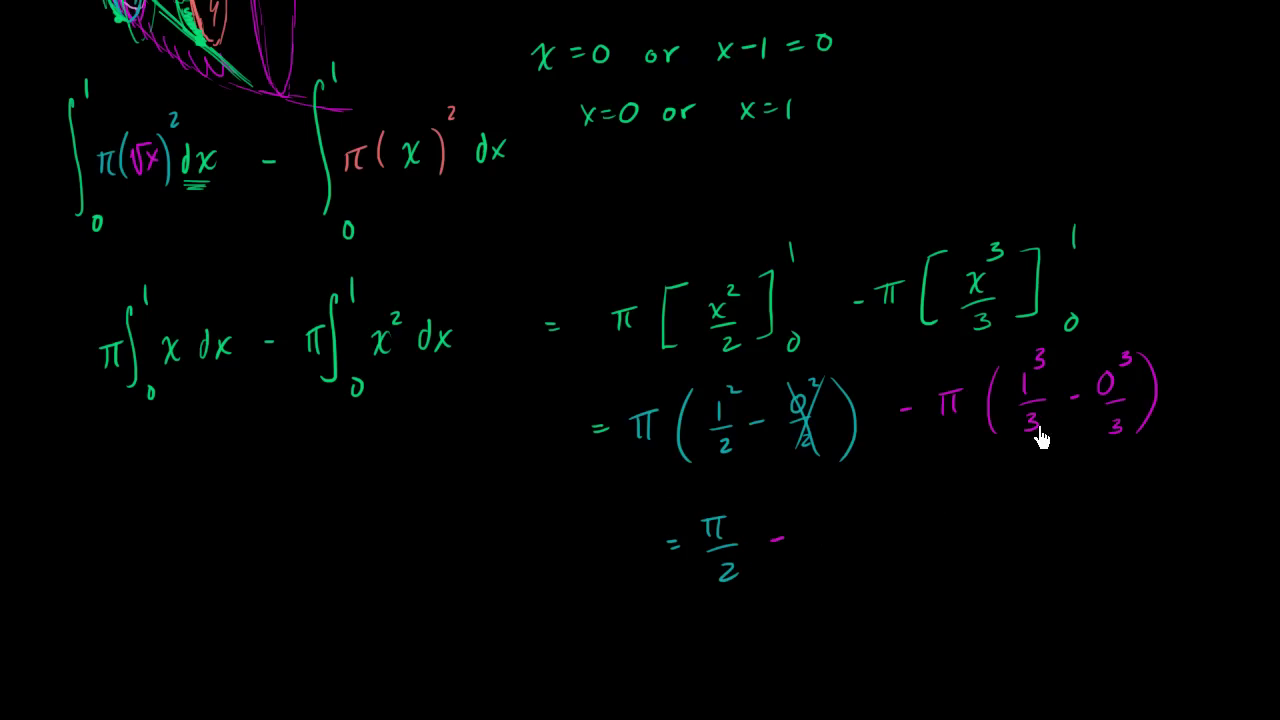 y
x = 0 or x - 1 = 0
x = 0 or x = 1
∫₀¹ π(√x)² dx - ∫₀¹ π(x)² dx
π∫₀¹ x dx - π∫₀¹ x² dx = π[x²/2]₀¹ - π[x³/3]₀¹
= π(1²/2 - 0²/2) - π(1³/3 - 0³/3)
= π/2 -